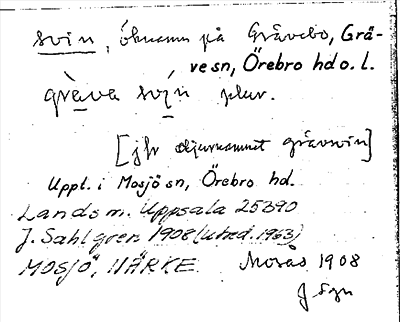 svin, öknamn på Grävebo, Grä-
ve sn, Örebro hd o. l.
gräva svin plur.
[jfr djurnamnet grävsvin]
Uppt. i Mosjö sn, Örebro hd.
Landsm. Uppsala 25390
J. Sahlgren 1908 (utred. 1963)
MOSJÖ, NÄRKE. Mosås 1908
J Sgn